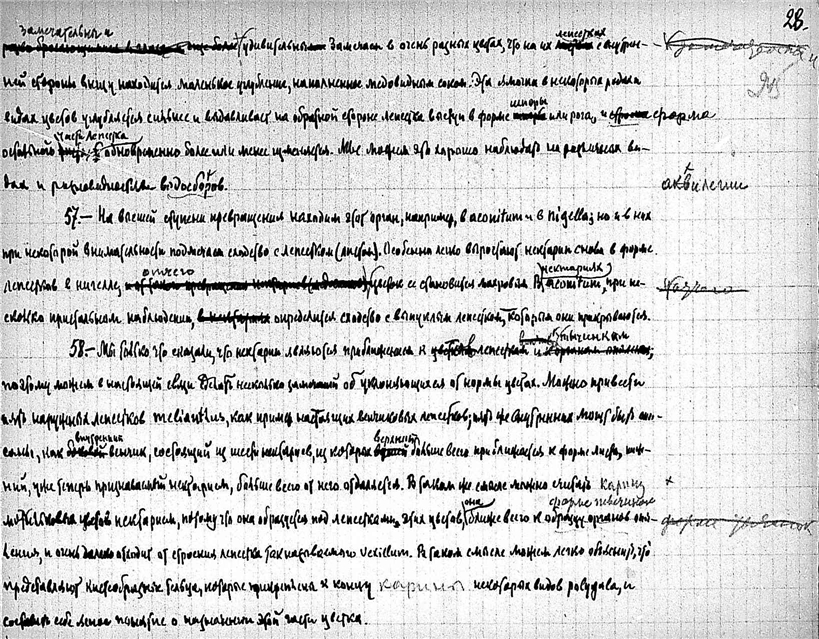 28.
Замечательны и
еще более удивительны. Замечаем в очень разных цветах, что на их лепестках с внутрен-
ней стороны внизу находится маленькое углубление, наполненное медовидным соком. Эта ямочка в некоторых родах и
видах цветов углубляется сильнее и выдавливает на обратной стороне лепестка выступ в форме шпоры или рога, и форма
остального части лепестка одновременно более или менее изменяется. Мы можем это хорошо наблюдать на различных ви-
дах и разновидностях водосборов.
аквилегии
57.— На высшей ступени превращения находим этот орган, например, в aconitum и в nigella; но и в них
при некоторой внимательности подмечаем сходство с лепестком (листом). Особенно легко вырастают нектарии снова в форме
лепестков в нигелле, отчего цветок ее становится махровым. В нектариях aconitum, при не-
сколько пристальном наблюдении, определится сходство с выпуклым лепестком, которым они прикрываются.
58.— Мы только что сказали, что нектарии являются приближением к лепесткам и к тычинкам
поэтому можем в настоящей связи сделать несколько замечаний об уклоняющихся от нормы цветах. Можно привести
пять наружных лепестков melianthus, как пример настоящих венчиковых лепестков; пять же внутренних могут быть опи-
саны, как внутренний венчик, состоящий из шести нектариев, из которых верхний больше всего приближается к форме листа, ниж-
ний, уже теперь признаваемый нектарием, больше всего от него отдаляется. В таком же смысле можно считать карину
мотыльковых цветов нектарием, потому что она образуется под лепестками этих цветов, она ближе всего к форме
и очень далеко отходит от строения лепестка так называемого vexillum. В таком смысле можем легко объяснить, что
представляют кистеобразные тельца, которые прикреплены к концу карины некоторых видов polygala, и
составить себе ясное понятие о назначении этой части цветка.